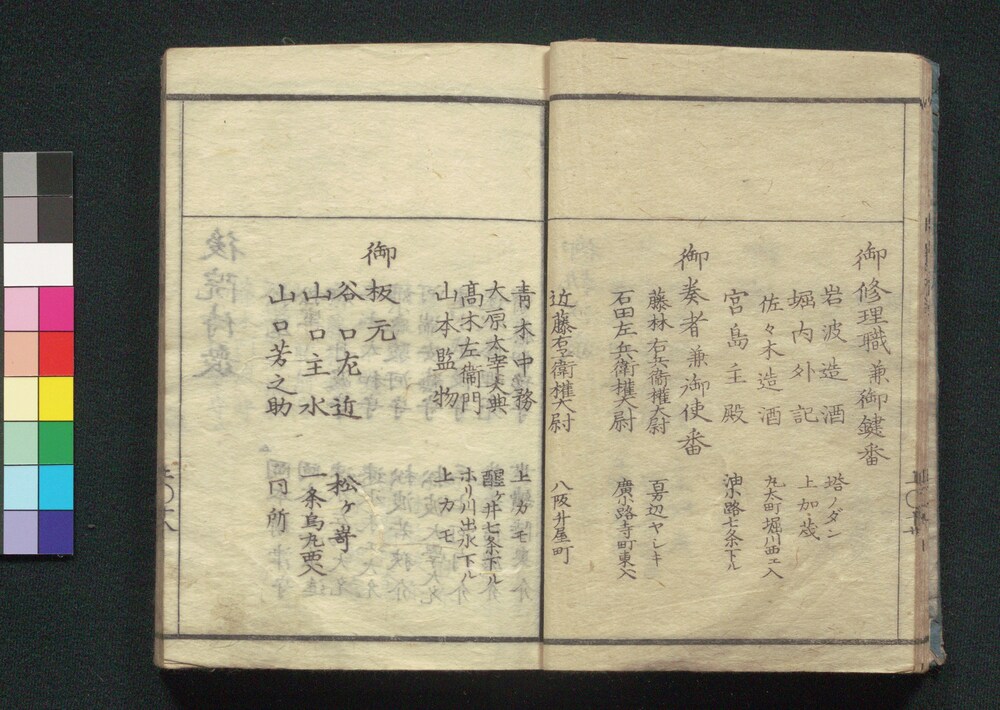 御修理職兼御鍵番
岩波造酒 塔ノダン
堀内外記 上加茂
佐々木造酒 丸太町堀川西エ入
宮島主殿 油小路七条下ル
御奏者兼御使番
藤林右兵衛権大尉 百万辺ヤシキ
石田左兵衛権大尉 廣小路寺町東入
近藤右兵衛権大尉 八阪升屋町
青木中務 上カモ
大原太宰大典 醒ヶ井七条下ル
髙木左衛門 ホリ川出水下ル
山本監物 上カモ
御板元
谷口左近 松ヶ嵜
山口主水 一条烏丸西入
山口芳之助 同所